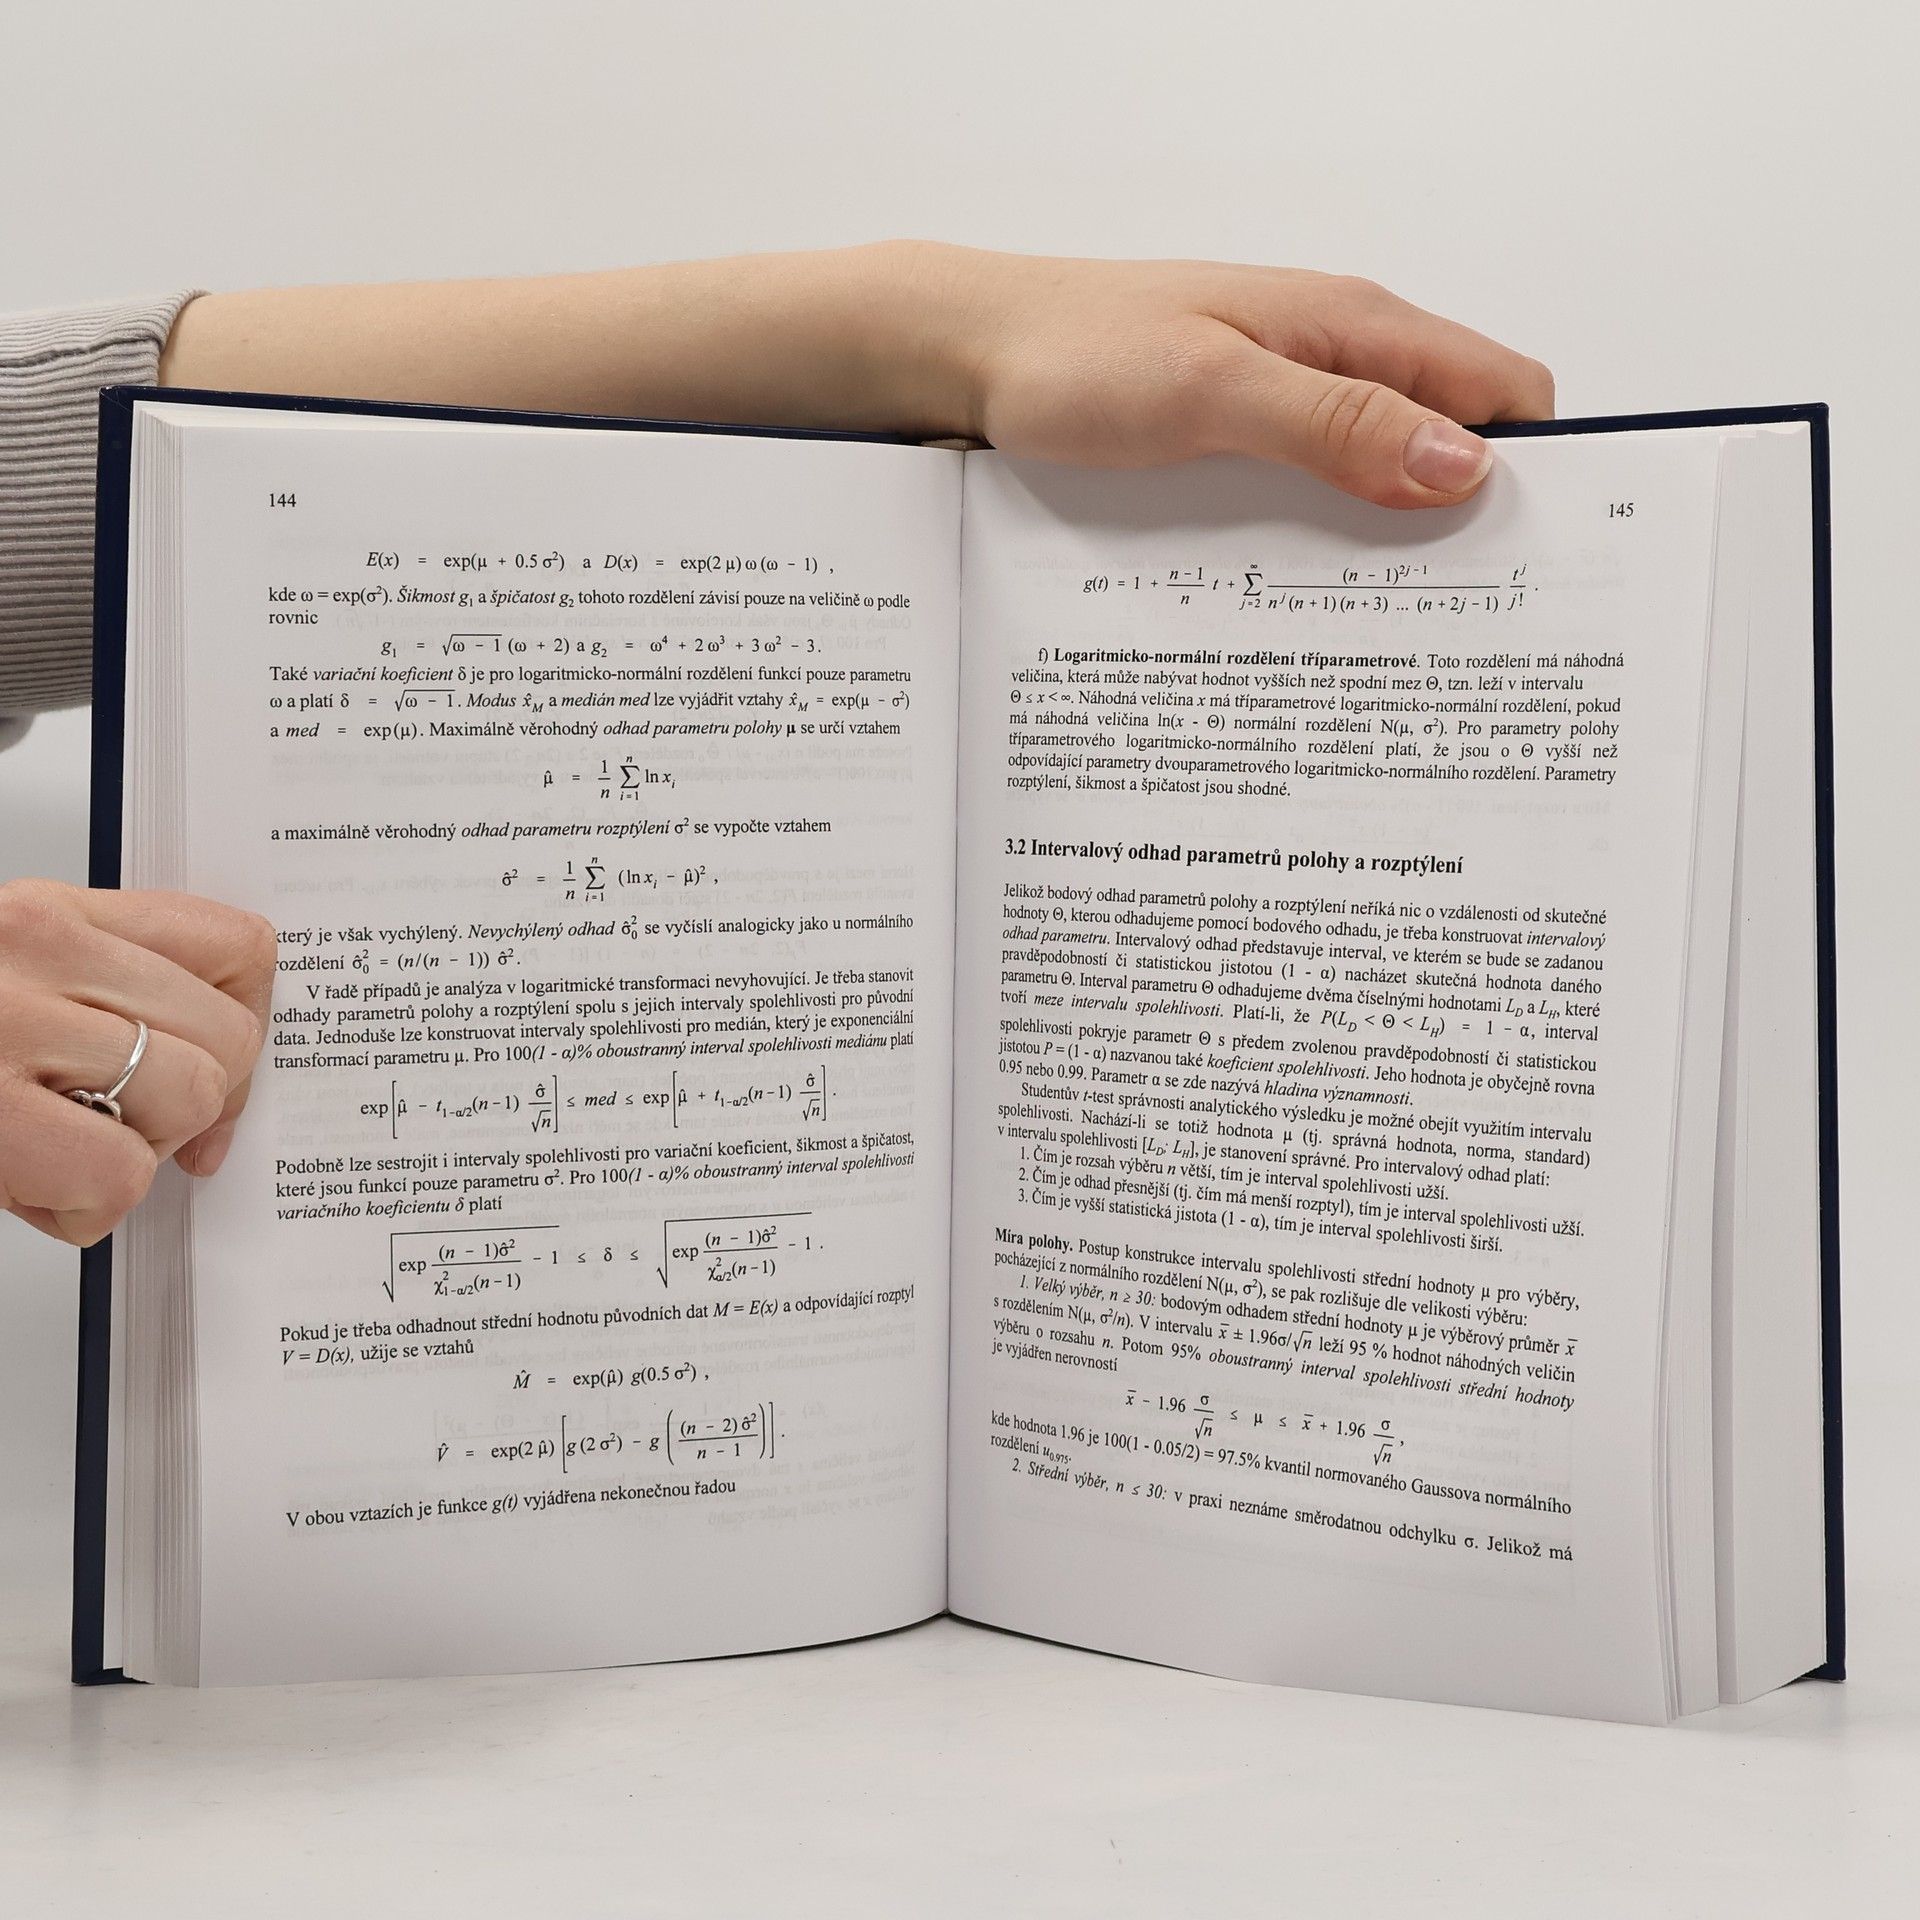 144
E(x) = exp(μ + 0.5 σ²) a D(x) = exp(2 μ) ω (ω − 1) ,
kde ω = exp(σ²). Šikmost g₁ a špičatost g₂ tohoto rozdělení závisí pouze na veličině ω podle
rovnic
g₁ = √(ω − 1) (ω + 2) a g₂ = ω⁴ + 2 ω³ + 3 ω² − 3.
Také variační koeficient δ je pro logaritmicko-normální rozdělení funkcí pouze parametru
ω a platí δ = √(ω − 1). Modus x̂_M a medián med lze vyjádřit vztahy x̂_M = exp(μ − σ²)
a med = exp(μ). Maximálně věrohodný odhad parametru polohy μ se určí vztahem
μ̂ = 1/n ∑_{i=1}^{n} ln x_i
a maximálně věrohodný odhad parametru rozptýlení σ² se vypočte vztahem
σ̂² = 1/n ∑_{i=1}^{n} (ln x_i − μ̂)² ,
který je však vychýlený. Nevychýlený odhad σ̂₀² se vyčíslí analogicky jako u normálního
rozdělení σ̂₀² = (n/(n − 1)) σ̂².
V řadě případů je analýza v logaritmické transformaci nevyhovující. Je třeba stanovit
odhady parametrů polohy a rozptýlení spolu s jejich intervaly spolehlivosti pro původní
data. Jednoduše lze konstruovat intervaly spolehlivosti pro medián, který je exponenciální
transformací parametru μ. Pro 100(1 - α)% oboustranný interval spolehlivosti mediánu platí
exp[μ̂ − t_{1−α/2}(n−1) σ̂/√n] ≤ med ≤ exp[μ̂ + t_{1−α/2}(n−1) σ̂/√n].
Podobně lze sestrojit i intervaly spolehlivosti pro variační koeficient, šikmost a špičatost,
které jsou funkcí pouze parametru σ². Pro 100(1 - α)% oboustranný interval spolehlivosti
variačního koeficientu δ platí
√(exp (n − 1)σ̂²/χ²_{1−α/2}(n−1) − 1) ≤ δ ≤ √(exp (n − 1)σ̂²/χ²_{α/2}(n−1) − 1) .
Pokud je třeba odhadnout střední hodnotu původních dat M = E(x) a odpovídající rozptyl
V = D(x), užije se vztahů
M̂ = exp(μ̂) g(0.5 σ²) ,
V̂ = exp(2 μ̂) [g (2 σ²) − g ((n − 2) σ̂²/(n − 1))].
V obou vztazích je funkce g(t) vyjádřena nekonečnou řadou
145
g(t) = 1 + (n − 1)/n t + ∑_{j=2}^{∞} (n − 1)^{2j−1}/(n^j (n + 1) (n + 3) ... (n + 2j − 1)) t^j/j! .
f) Logaritmicko-normální rozdělení tříparametrové. Toto rozdělení má náhodná
veličina, která může nabývat hodnot vyšších než spodní mez Θ, tzn. leží v intervalu
Θ ≤ x < ∞. Náhodná veličina x má tříparametrové logaritmicko-normální rozdělení, pokud
má náhodná veličina ln(x - Θ) normální rozdělení N(μ, σ²). Pro parametry polohy
tříparametrového logaritmicko-normálního rozdělení platí, že jsou o Θ vyšší než
odpovídající parametry dvouparametrového logaritmicko-normálního rozdělení. Parametry
rozptýlení, šikmost a špičatost jsou shodné.
3.2 Intervalový odhad parametrů polohy a rozptýlení
Jelikož bodový odhad parametrů polohy a rozptýlení neříká nic o vzdálenosti od skutečné
hodnoty Θ, kterou odhadujeme pomocí bodového odhadu, je třeba konstruovat intervalový
odhad parametru. Intervalový odhad představuje interval, ve kterém se bude se zadanou
pravděpodobností či statistickou jistotou (1 - α) nacházet skutečná hodnota daného
parametru Θ. Interval parametru Θ odhadujeme dvěma číselnými hodnotami L_D a L_H, které
tvoří meze intervalu spolehlivosti. Platí-li, že P(L_D < Θ < L_H) = 1 − α, interval
spolehlivosti pokryje parametr Θ s předem zvolenou pravděpodobností či statistickou
jistotou P = (1 - α) nazvanou také koeficient spolehlivosti. Jeho hodnota je obyčejně rovna
0.95 nebo 0.99. Parametr α se zde nazývá hladina významnosti.
Studentův t-test správnosti analytického výsledku je možné obejít využitím intervalu
spolehlivosti. Nachází-li se totiž hodnota μ (tj. správná hodnota, norma, standard)
v intervalu spolehlivosti [L_D; L_H], je stanovení správné. Pro intervalový odhad platí:
1. Čím je rozsah výběru n větší, tím je interval spolehlivosti užší.
2. Čím je odhad přesnější (tj. čím má menší rozptyl), tím je interval spolehlivosti užší.
3. Čím je vyšší statistická jistota (1 - α), tím je interval spolehlivosti širší.
Míra polohy. Postup konstrukce intervalu spolehlivosti střední hodnoty μ pro výběry,
pocházející z normálního rozdělení N(μ, σ²), se pak rozlišuje dle velikosti výběru:
1. Velký výběr, n ≥ 30: bodovým odhadem střední hodnoty μ je výběrový průměr x̄
s rozdělením N(μ, σ²/n). V intervalu x̄ ± 1.96σ/√n leží 95 % hodnot náhodných veličin
výběru o rozsahu n. Potom 95% oboustranný interval spolehlivosti střední hodnoty
je vyjádřen nerovností
x̄ − 1.96 σ/√n ≤ μ ≤ x̄ + 1.96 σ/√n ,
kde hodnota 1.96 je 100(1 - 0.05/2) = 97.5% kvantil normovaného Gaussova normálního
rozdělení u_{0.975}.
2. Střední výběr, n ≤ 30: v praxi neznáme směrodatnou odchylku σ. Jelikož má